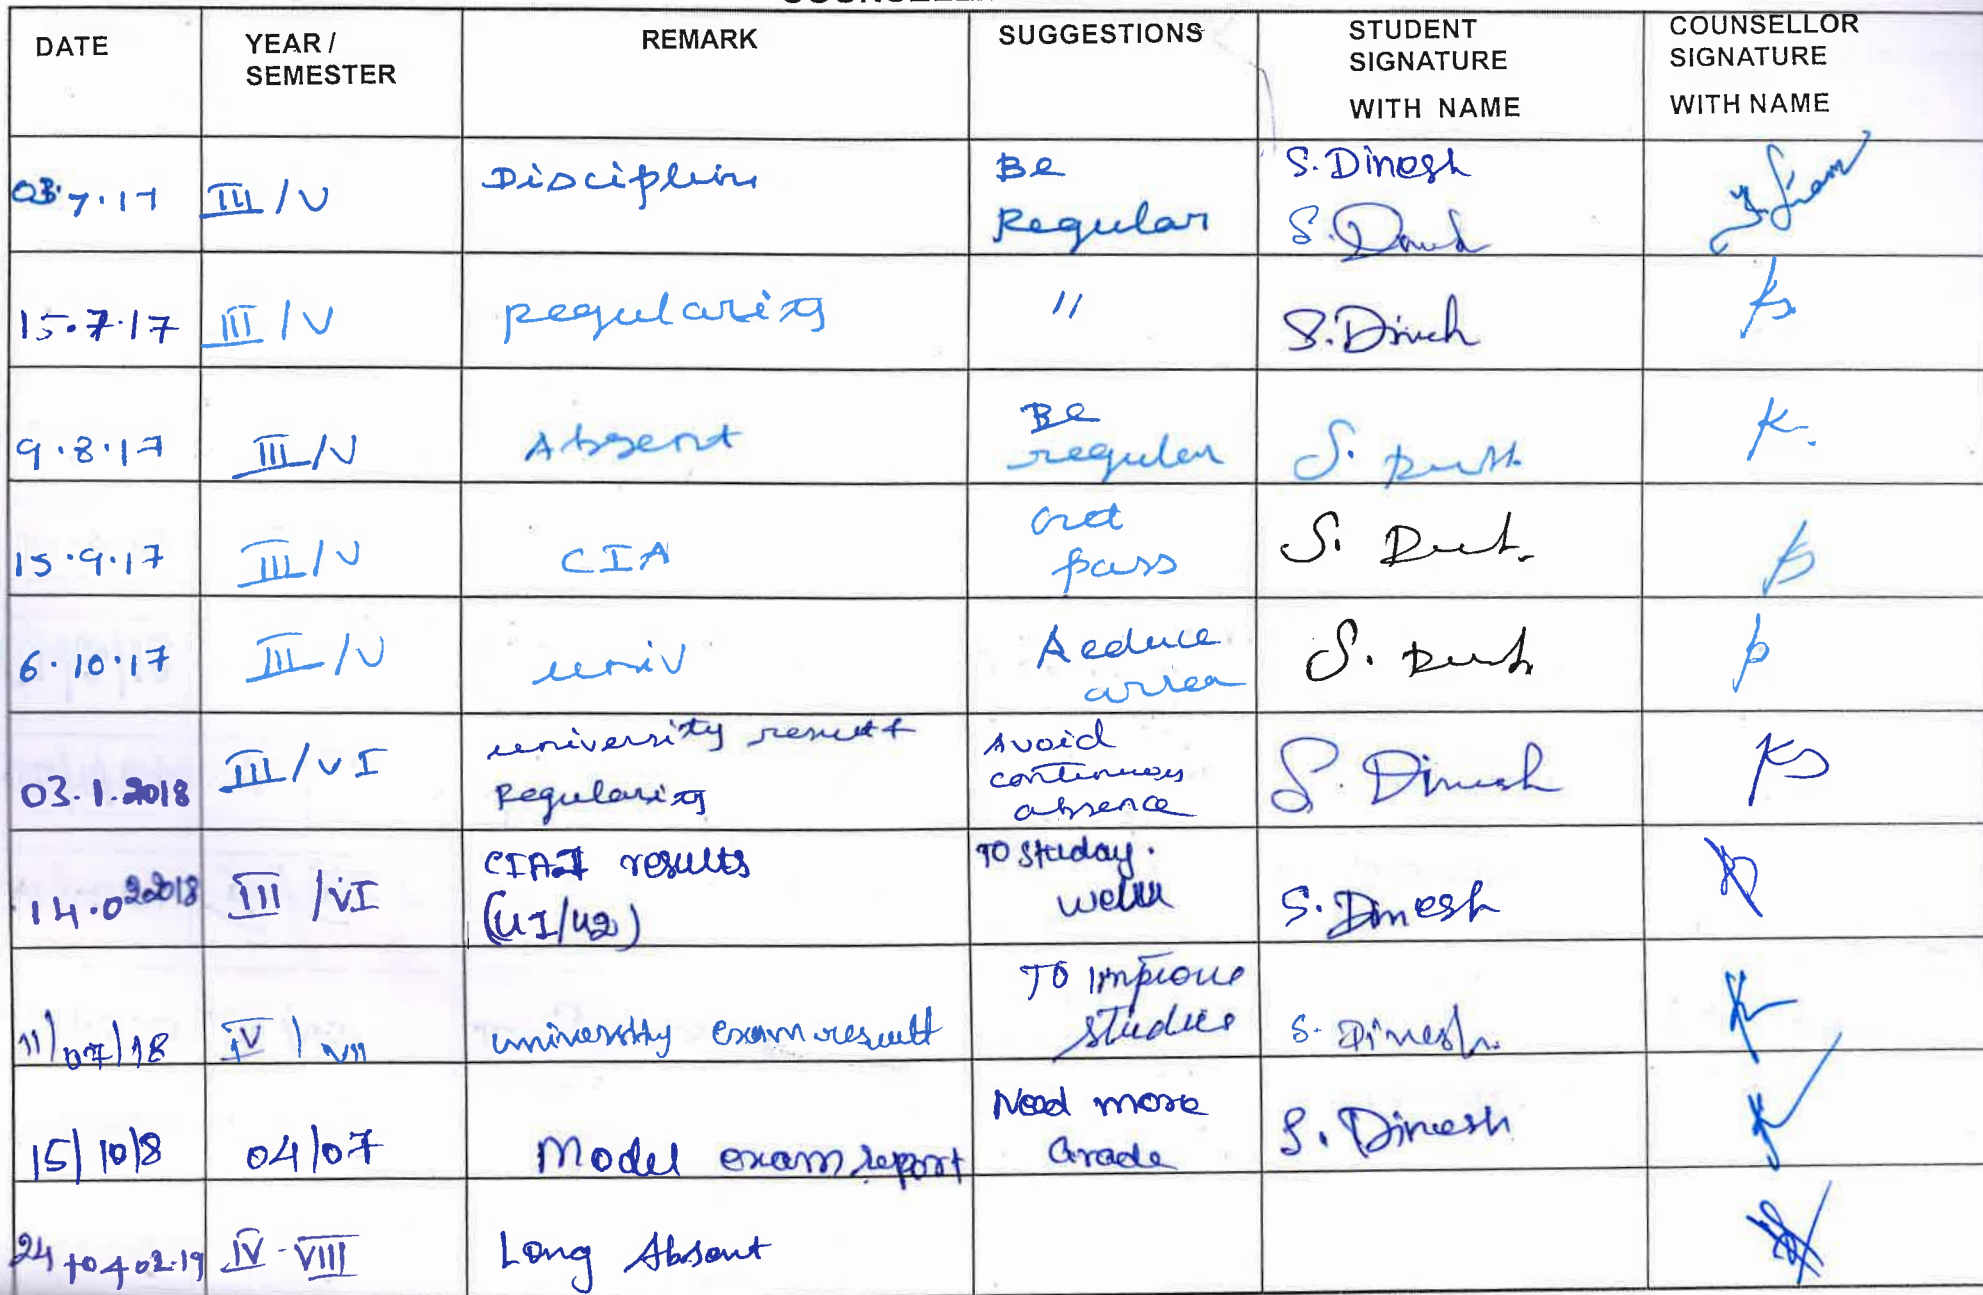 DATE
YEAR /
SEMESTER
REMARK
SUGGESTIONS
STUDENT
SIGNATURE
WITH NAME
COUNSELLOR
SIGNATURE
WITH NAME
03.7.17 III/V Discipline Be
Regular S. Dinesh
15.7.17 III/V regularity " S. Dinesh
9.8.17 III/V Absent Be
regular
15.9.17 III/V CIA Get
pass
6.10.17 III/V univ Reduce
arrear
03.1.2018 III/VI university result
Regularity Avoid
continuous
absence S. Dinesh
14.02.2018 III/VI CIA I results
(U1/U2) TO studay.
well S. Dinesh
11/07/18 IV/VII university exam result TO improve
studies S. Dinesh
15/10/8 04/07 Model exam report Need more
Grade S. Dinesh
24 to 4 02.19 IV-VIII Long Absent